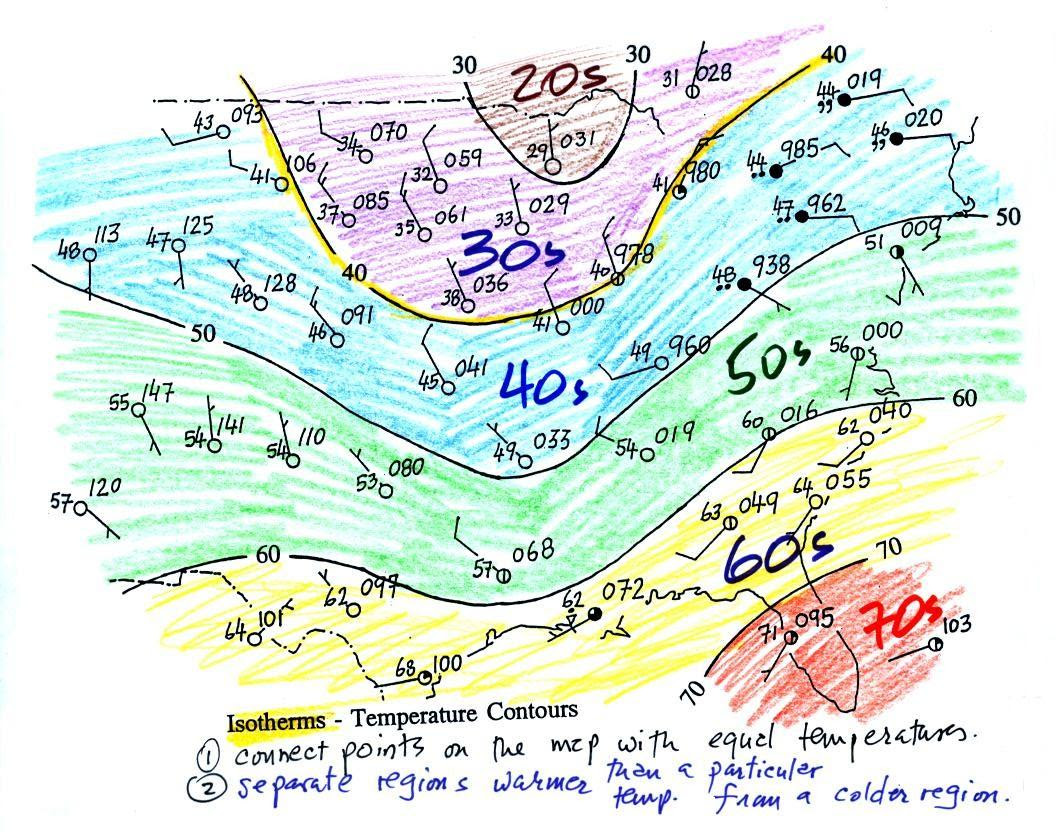 30 20s 30 40
31 028
44 019
43 093
46 020
34 070
29 031
41 106
32 059
44 985
41 980
37 085
35 061
33 029
47 962
50
48 113
47 125
30s
40 978
51 009
48 128
40
38 036
48 938
46 091
41 000
50
45 041
40s
49 960
50s
56 000
55 147
60
54 141
54 110
49 033
54 019
60 016
62 040
53 080
57 120
63 049
64 055
57 068
60s
70
60
62 097
62 072
64 101
71 095
70s
103
68 100
70
Isotherms - Temperature Contours
① connect points on the map with equal temperatures.
② separate regions warmer than a particular
temp. from a colder region.